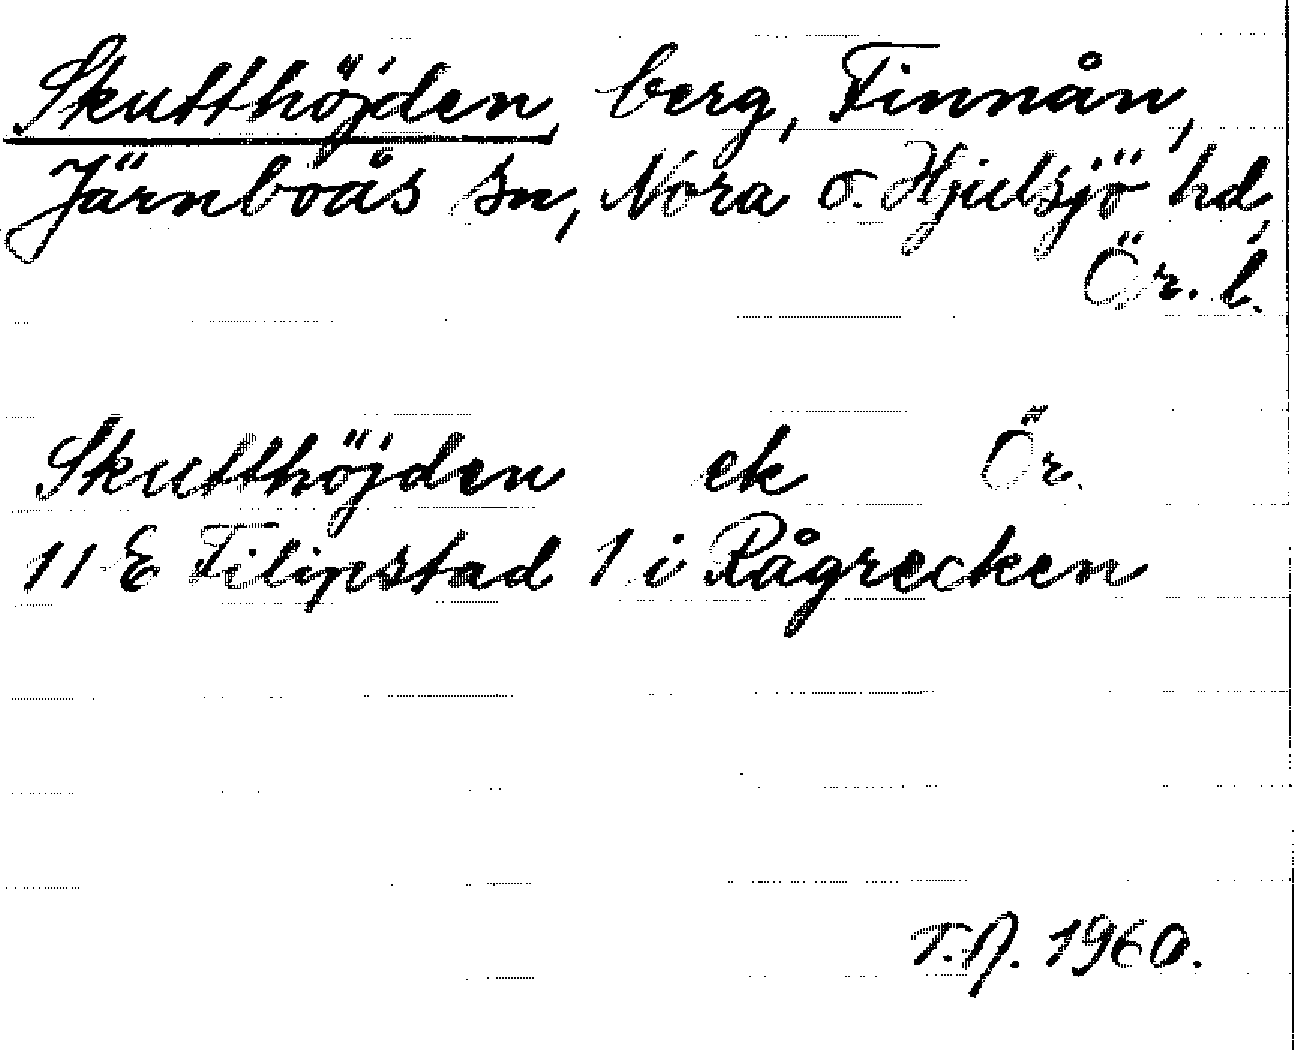 Skutthöjden, berg, Finnån,
Järnboås sn, Nora o. Hjulsjö hd,
Ör. l.
Skutthöjden ek Ör.
11 E Filipstad 1 i Rågrecken
1960.